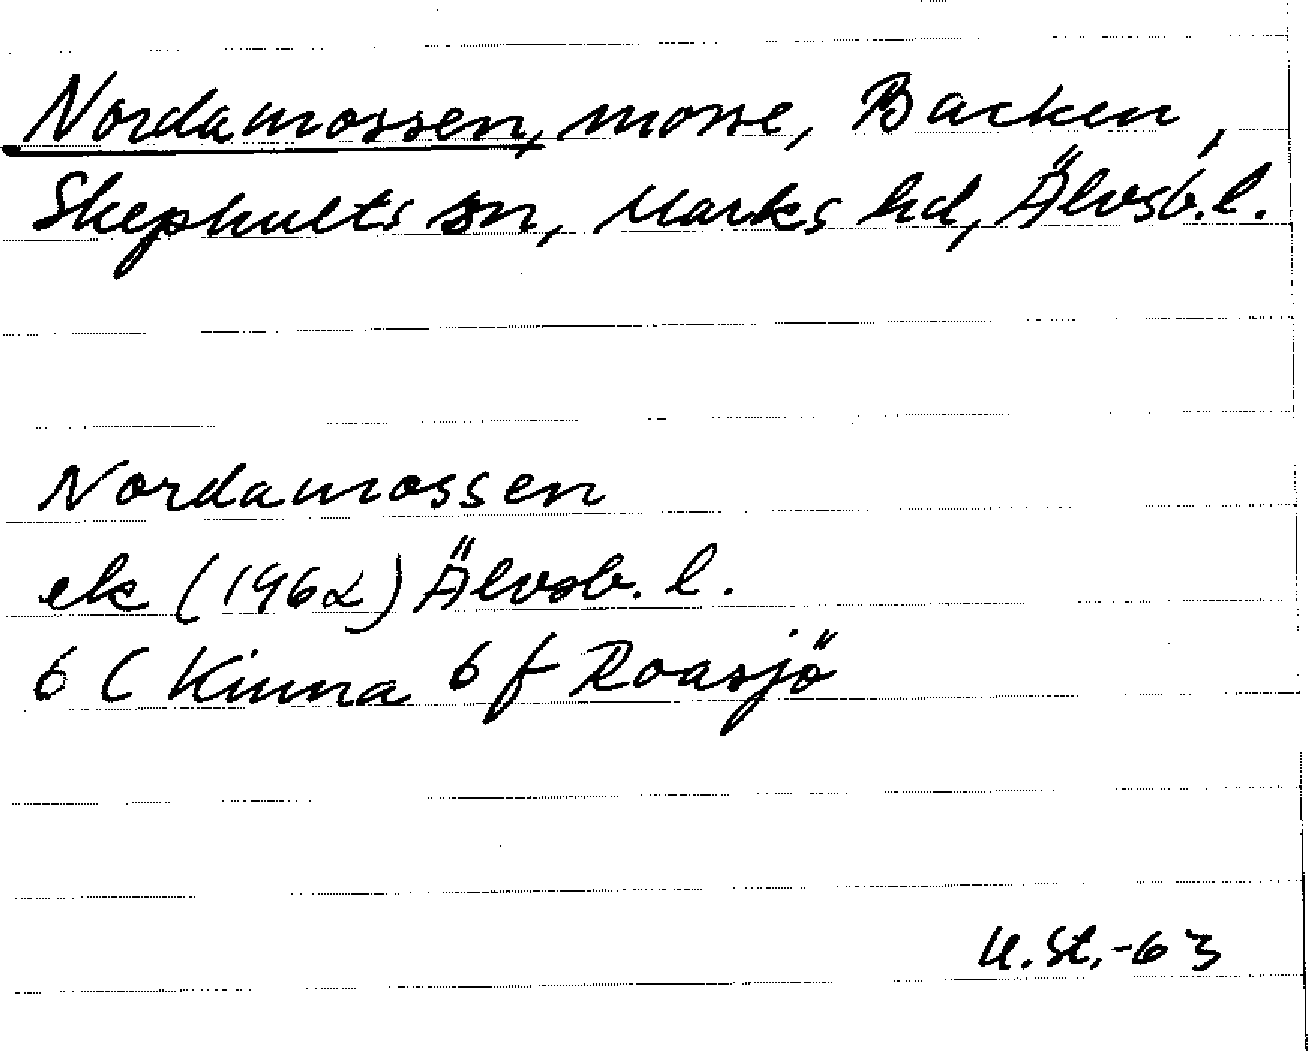 Nordamossen, mosse, Backen,
Skephults sn, Marks hd, Älvsb. l.
Nordamossen
ek (1962) Älvsb. l.
6 C Kinna 6 f Roasjö
U. St. -63